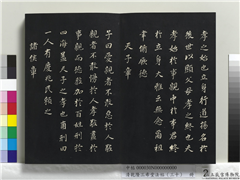 孝之始也立身行道揚名於
後世以顯父母孝之終也夫
孝始於事親中於事君終
於立身大雅云無念爾祖
聿脩厥德
天子章
子曰愛親者不敢惡於人敬
親者不敢慢於人愛敬盡於
事親而德教加於百姓刑於
四海蓋天子之孝也甫刑曰
一人有慶兆民賴之
諸侯章